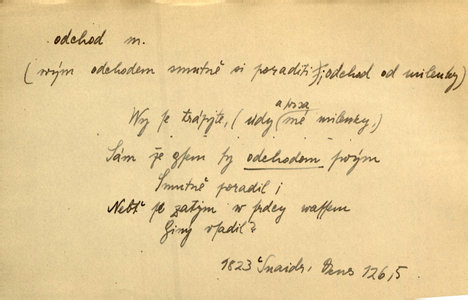 odchod m.
(swým odchodem smutně si poraditi; odchod od milenky)
a prsa
Wy se trápjte, (vdy mé milenky,)
Sám že gsem ty odchodem swým
Smutně poradil;
Nebť se zatým w srdcy wassem
Giný vsadil?
1823 Šnaidr, Bens 126,5